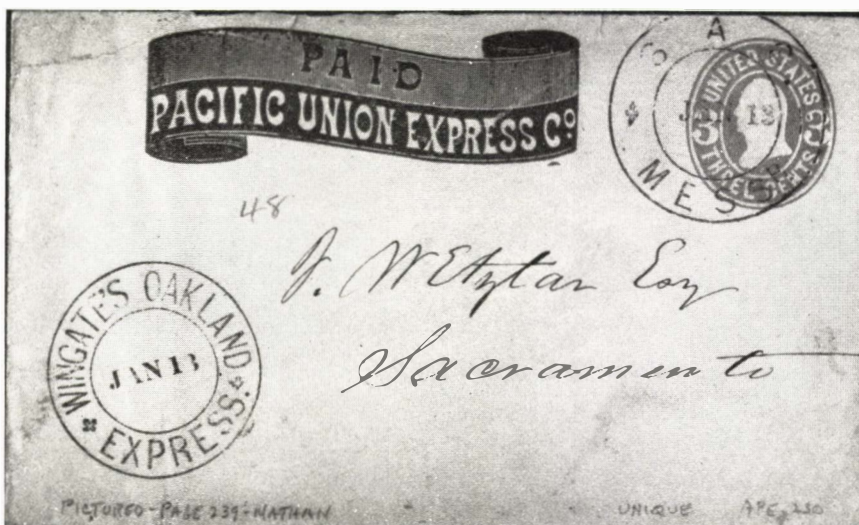 PAID
PACIFIC UNION EXPRESS Co
SAC
JAN 13
MESSR
UNITED STATES
3
THREE CENTS
48
J. Wetzlar Esq
Sacramento
WINGATE'S OAKLAND
JAN 13
EXPRESS.
PICTURED - PAGE 239 - NATHAN
UNIQUE APE, 250